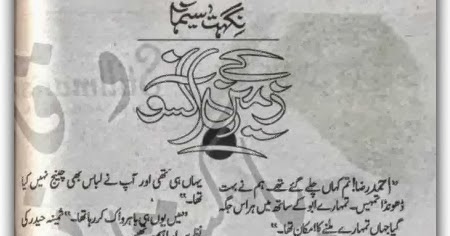 نگہت سیما
زمین کے آنسو
"احمد رضا! تم کہاں چلے گئے تھے۔ ہم نے بہت
ڈھونڈا تمہیں۔ تمہارے ابو کے ساتھ میں ہر اس جگہ
گیا جہاں تمہارے ملنے کا امکان تھا۔"
یہاں ہی تھی اور آپ نے لباس بھی چینج نہیں کیا
"میں یوں ہی باہر واک کر رہا تھا۔" ثمینہ حیدر کی